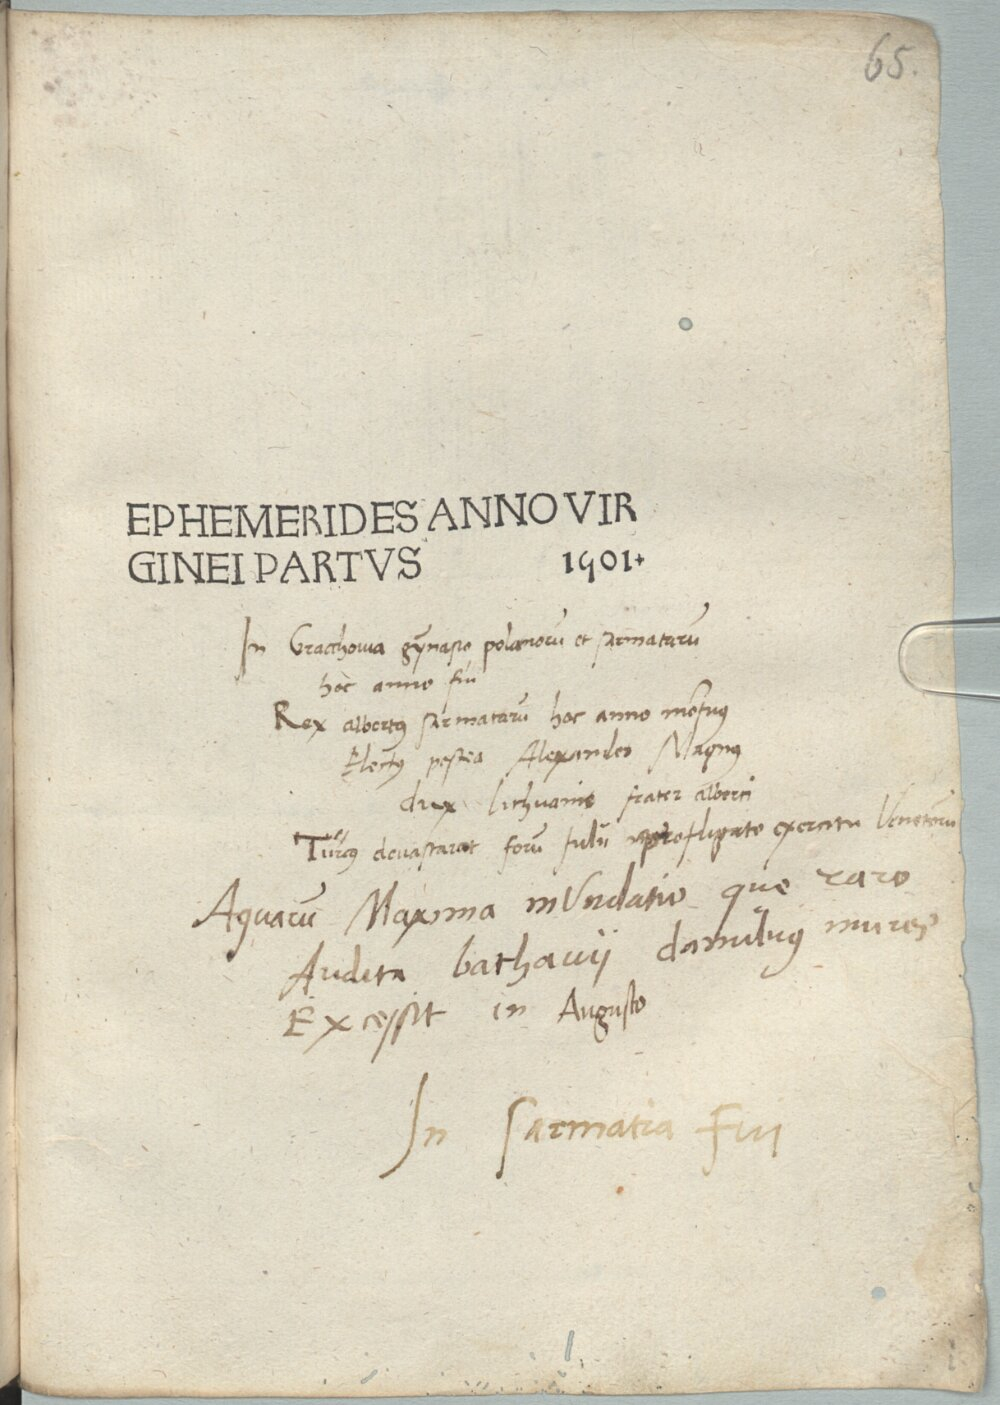 65.
EPHEMERIDES ANNO VIR
GINEI PARTVS 1501+
In Gracchouia gӯnasio polanorū et sarmatarū
hoc anno fui
Rex albertꝰ sarmatarū hoc anno mortuꝰ
Electꝰ postea Alexander Magnꝰ
dux lithuanie frater alberti
Turcꝰ deuastarat forū Iulii profligato exercitu Venetorū
Aquarū Maxima inVndatio que raro
Audita bathauij danubiꝰ mures
Excessit in Augusto
In Sarmatia Fui